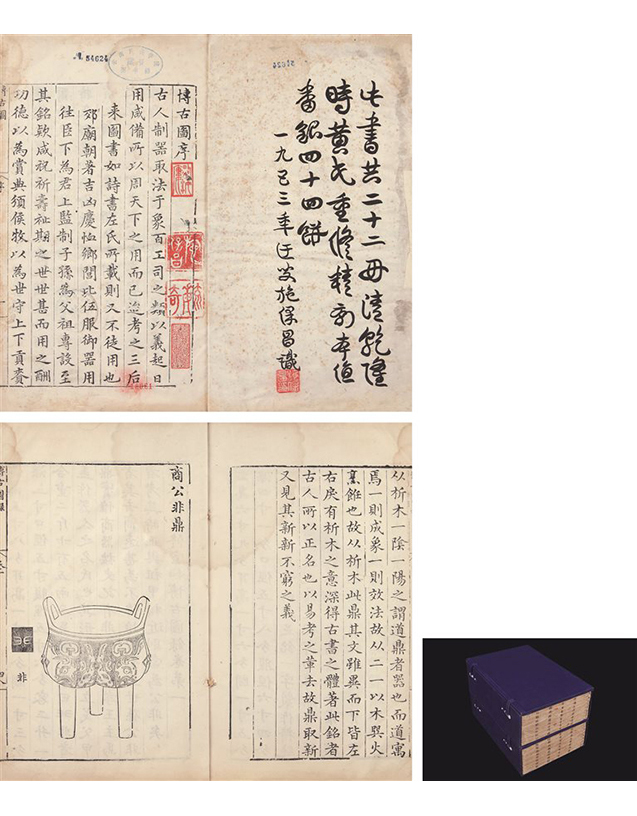 54624
此書共二十二冊清乾隆
時黃氏重修精刻本值
番銀四十四餅
一九五三年迂叟施保昌識
博古圖序
古人制器取法于象百工司之類以義起日
用咸備所以周天下之用而已迨考之三后
來圖書如詩書左氏所載則又不徒用也
郊廟朝著吉凶慶恤鄉閭比伍服御器用
往臣下為君上監制子孫為父祖專設至
其銘欵咸祝祈壽祉期之世世甚而用之酬
功德以為賞典須侯牧以為世守上下貢賚
从析木一陰一陽之謂道鼎者器也而道寓
焉一則成象一則效法故从二一以木巽火
烹飪也故从析木此鼎其文雖異而下皆左
右戾有析木之意深得古書之體著此銘者
古人所以正名也以易考之革去故鼎取新
又見其新新不窮之義
商公非鼎
非